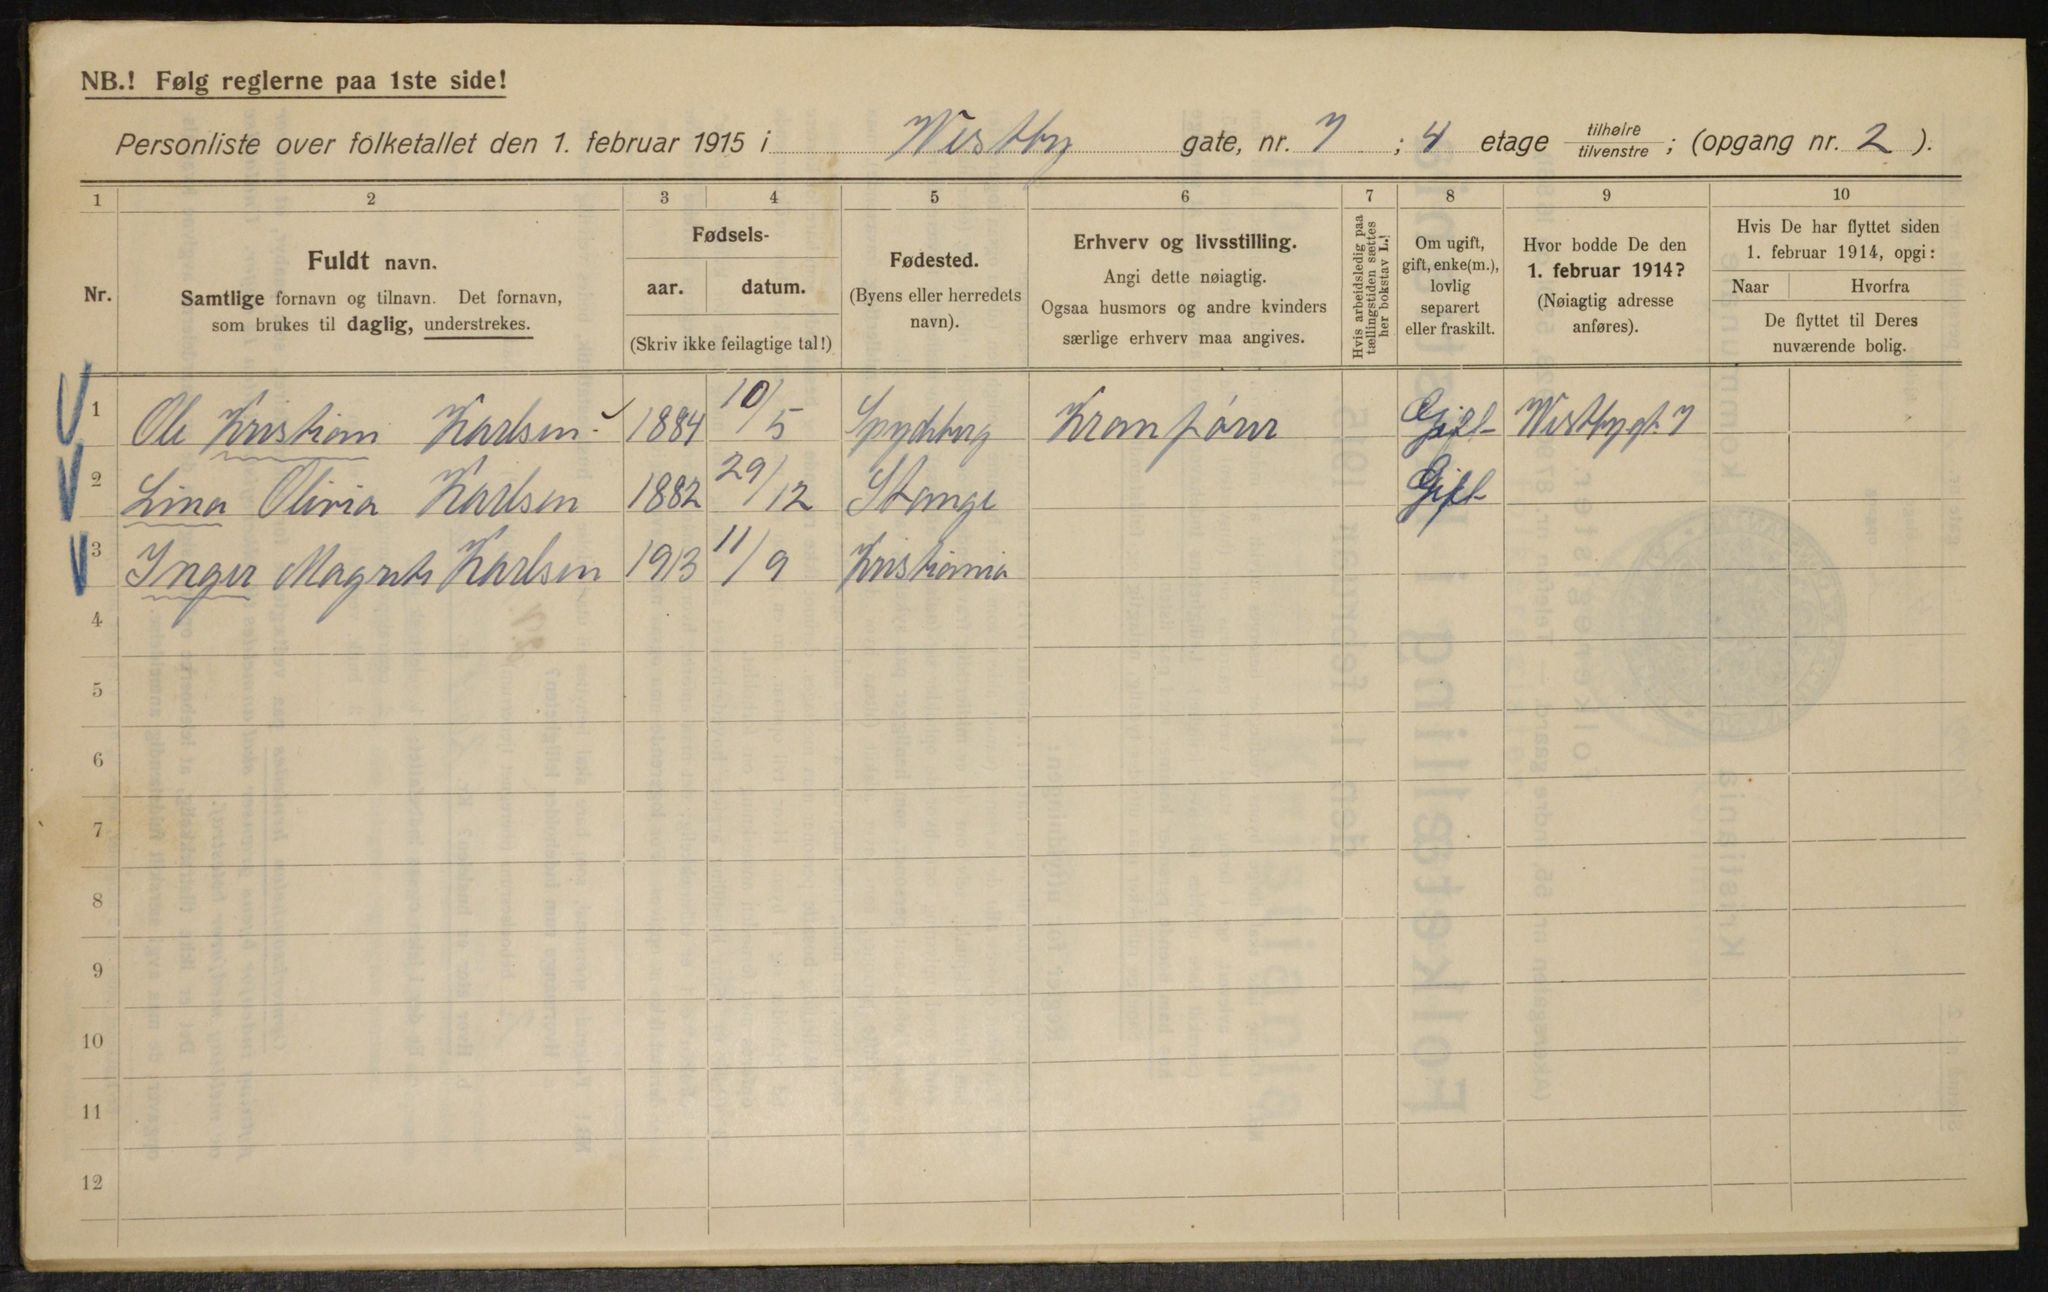 NB.! Følg reglerne paa 1ste side!
Personliste over folketallet den 1. februar 1915 i Westby gate, nr. 7 ; 4 etage tilhøire tilvenstre ; (opgang nr. 2 ).
1 2 3 4 5 6 7 8 9 10
Nr.
Fuldt navn.
Samtlige fornavn og tilnavn. Det fornavn,
som brukes til daglig, understrekes.
Fødsels-
aar. datum.
(Skriv ikke feilagtige tal!)
Fødested.
(Byens eller herredets
navn).
Erhverv og livsstilling.
Angi dette nøiagtig.
Ogsaa husmors og andre kvinders
særlige erhverv maa angives.
Hvis arbeidsledig paa
tællingstiden sættes
her bokstav L.!
Om ugift,
gift, enke(m.),
lovlig
separert
eller fraskilt.
Hvor bodde De den
1. februar 1914?
(Nøiagtig adresse
anføres).
Hvis De har flyttet siden
1. februar 1914, opgi:
Naar Hvorfra
De flyttet til Deres
nuværende bolig.
1 Ole Kristian Karlsen 1884 10/5 Spydeberg Kranfører Gift Westbygt. 7
2 Lina Olivia Karlsen 1882 29/12 Stange Gift
3 Inger Magrete Karlsen 1913 11/9 Kristiania
4
5
6
7
8
9
10
11
12